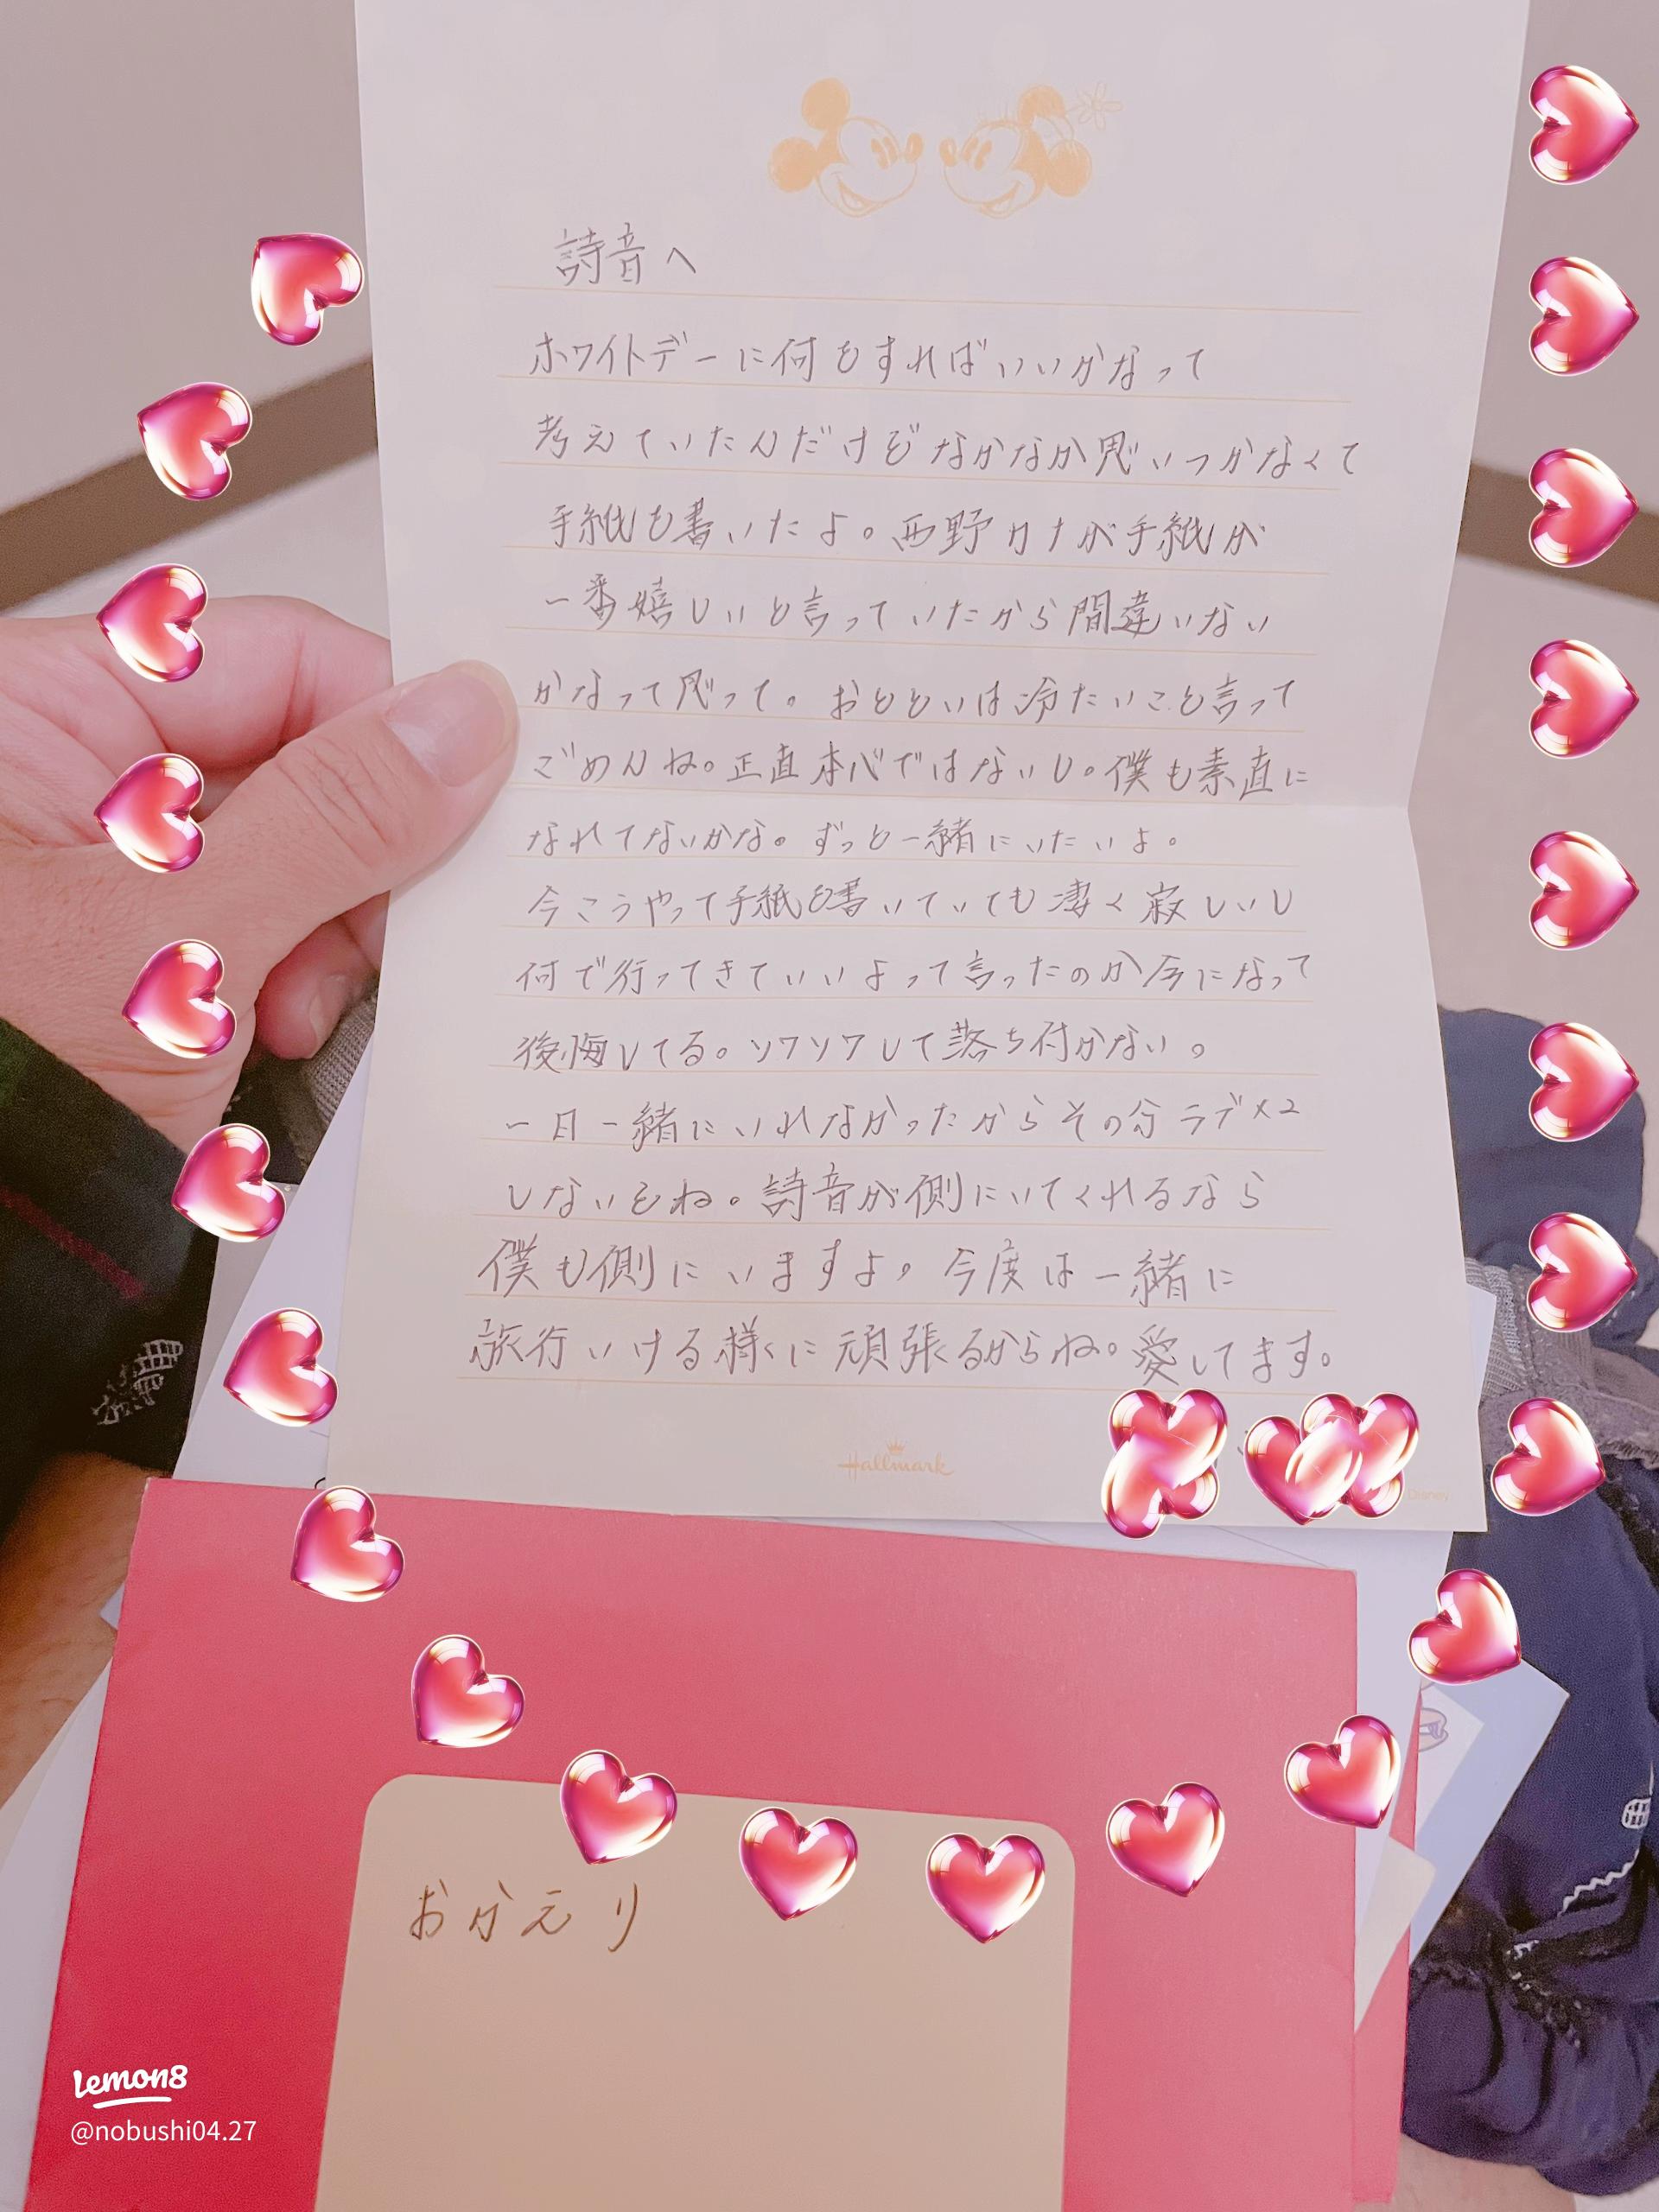 詩音へ
ホワイトデーに何をすればいいかなって
考えていたんだけどなかなか思いつかなくて
手紙を書いたよ。西野カナが手紙が
一番嬉しいと言っていたから間違いない
かなって思って。おとといは冷たいこと言って
ごめんね。正直本心ではないし。僕も素直に
なれてないかな。ずっと一緒にいたいよ。
今こうやって手紙を書いていても凄く寂しいし
何で行ってきていいよって言ったのか今になって
後悔してる。ソワソワして落ち付かない。
一日一緒にいれなかったからその分ラブ×2
しないとね。詩音が側にいてくれるなら
僕も側にいますよ。今度は一緒に
旅行いける様に頑張るからね。愛してます。
Hallmark
Disney
おかえり
Lemon8
@nobushi04.27